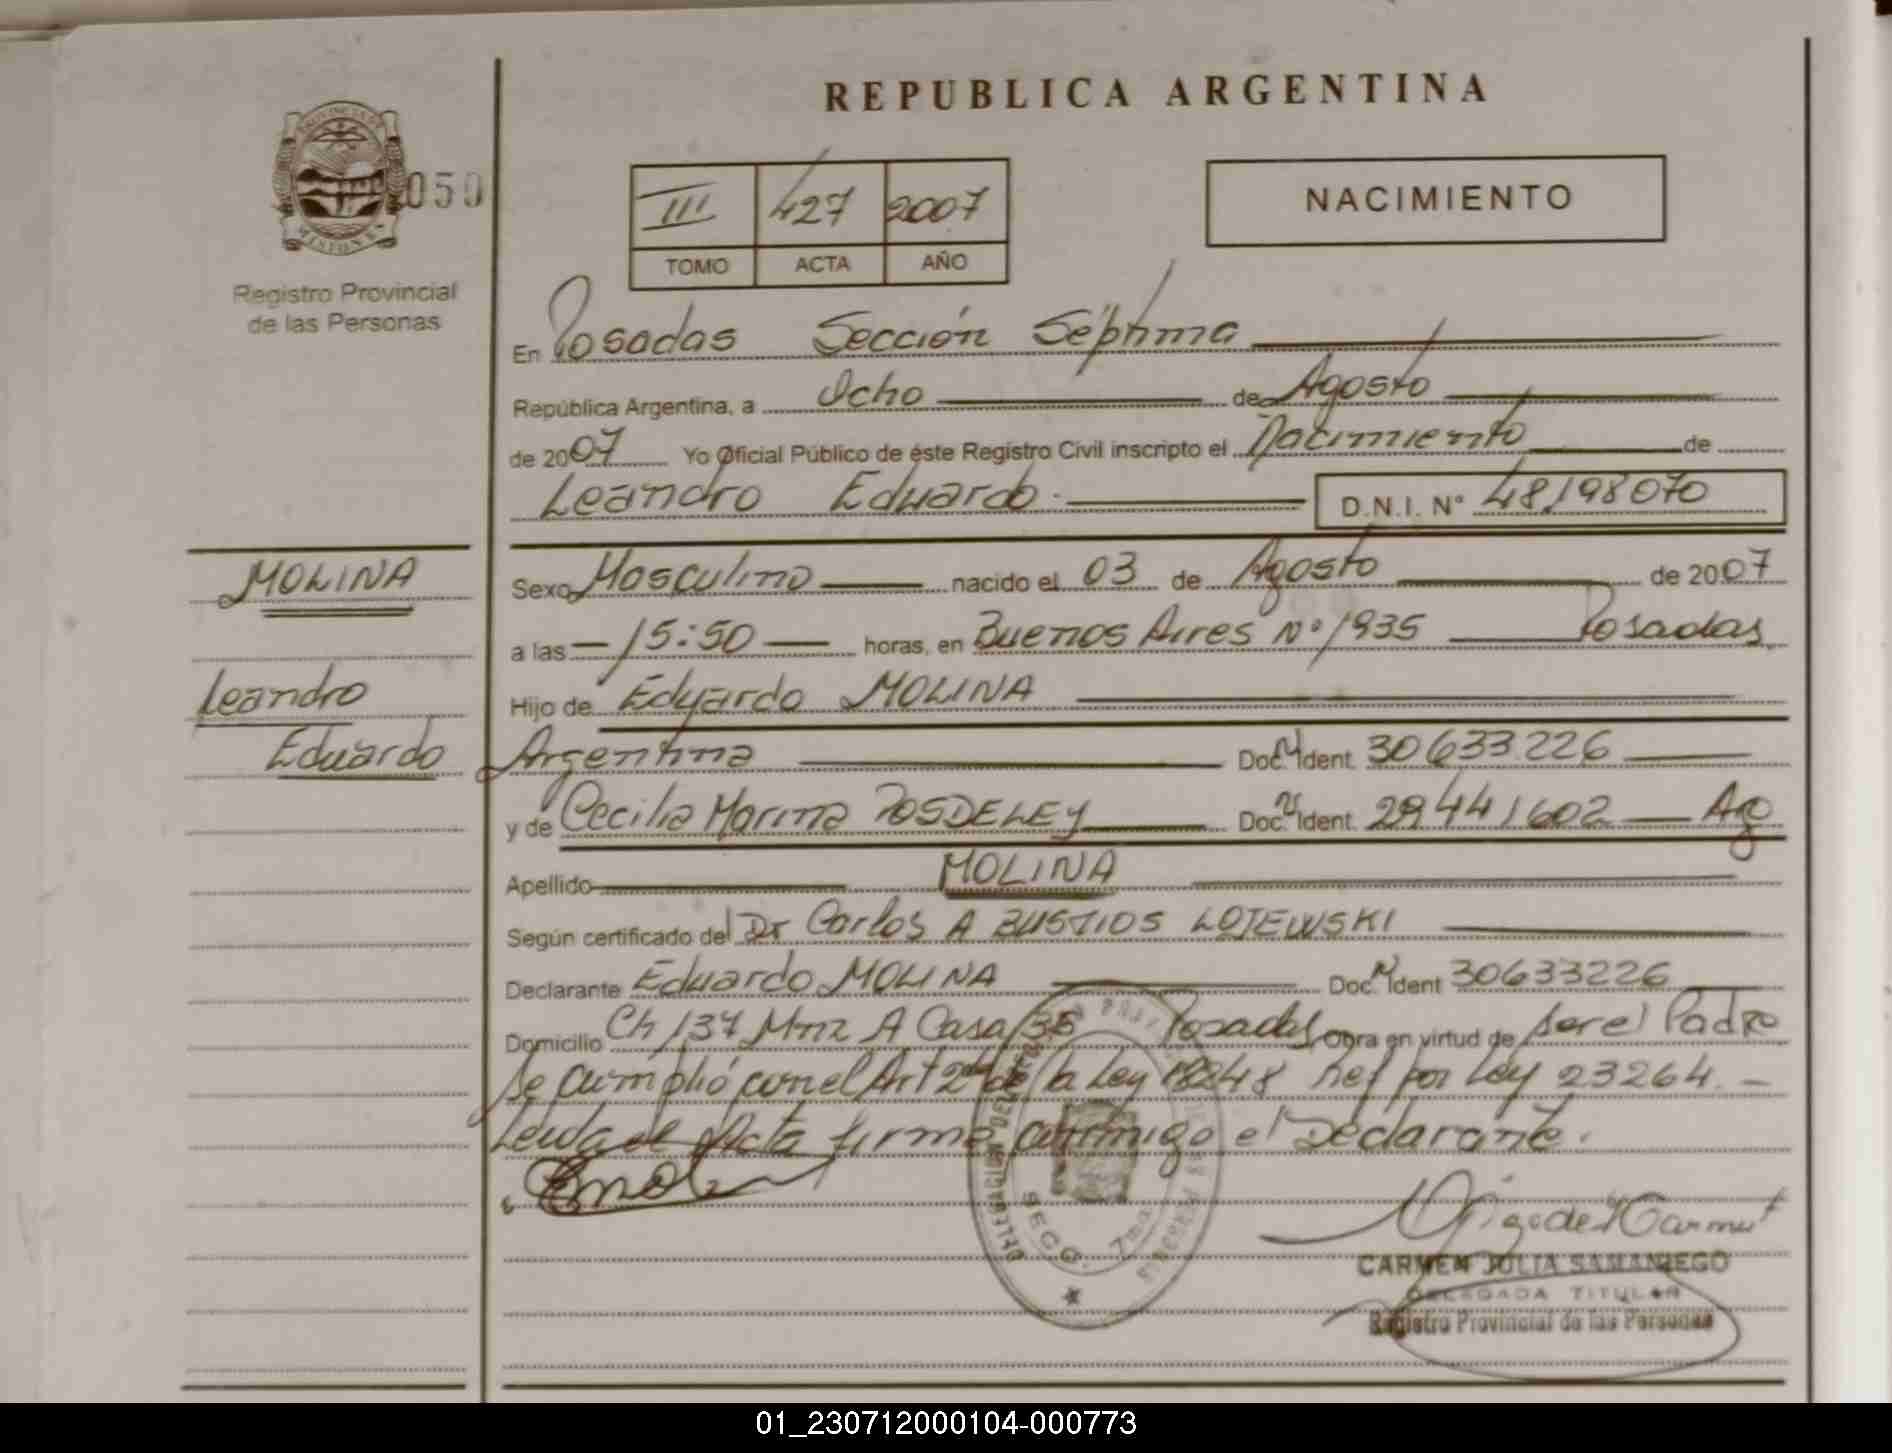 REPUBLICA ARGENTINA
PROVINCIA DE MISIONES
050
Registro Provincial
de las Personas
III 427 2007
TOMO ACTA AÑO
NACIMIENTO
En Posadas Sección Séptima
República Argentina, a Ocho de Agosto
de 2007 Yo Oficial Público de éste Registro Civil inscripto el Nacimiento de
Leandro Eduardo. D.N.I. Nº 48198070
MOLINA
Leandro
Eduardo
Sexo Masculino nacido el 03 de Agosto de 2007
a las 15:50 horas, en Buenos Aires Nº 1935 Posadas
Hijo de Eduardo MOLINA
Argentina Doc. N Ident. 30.633.226
y de Cecilia Marina POSDELEY Doc. N Ident. 29441602 Arg
Apellido MOLINA
Según certificado del Dr Carlos A BUSTIOS LOJEWSKI
Declarante Eduardo MOLINA Doc. N Ident 30633226
Domicilio Ch 137 Mnz A Casa 35 Posadas Obra en virtud de ser el Padre
Se cumplió con el Art 2do de la Ley 18248 Ref por Ley 23264. -
Leida el Acta firma conmigo el Declarante.
DELEGACION DEL REGISTRO PROVINCIAL DE LAS PERSONAS
SECC. 7ma
CARMEN JULIA SAMANIEGO
DELEGADA TITULAR
Registro Provincial de las Personas
01_230712000104-000773